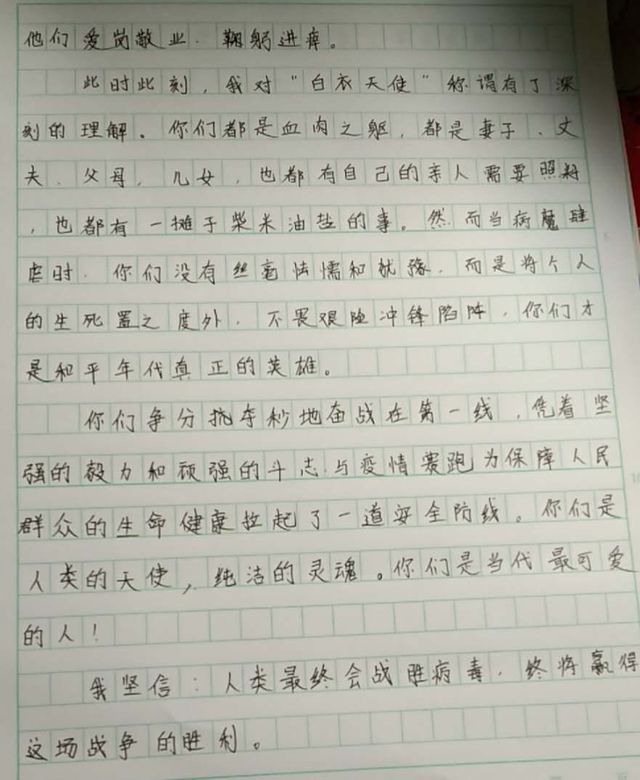 他们爱岗敬业、鞠躬进瘁。
此时此刻，我对“白衣天使”称谓有了深
刻的理解。你们都是血肉之躯，都是妻子、丈
夫、父母、儿女，也都有自己的亲人需要照料
，也都有一摊子柴米油盐的事。然而当病魔肆
虐时，你们没有丝毫怯懦和犹豫，而是将个人
的生死置之度外，不畏艰险冲锋陷阵，你们才
是和平年代真正的英雄。
你们争分抗夺秒地奋战在第一线，凭着坚
强的毅力和顽强的斗志与疫情赛跑为保障人民
群众的生命健康拉起了一道安全防线。你们是
人类的天使，纯洁的灵魂。你们是当代最可爱
的人！
我坚信：人类最终会战胜病毒，终将赢得
这场战争的胜利。